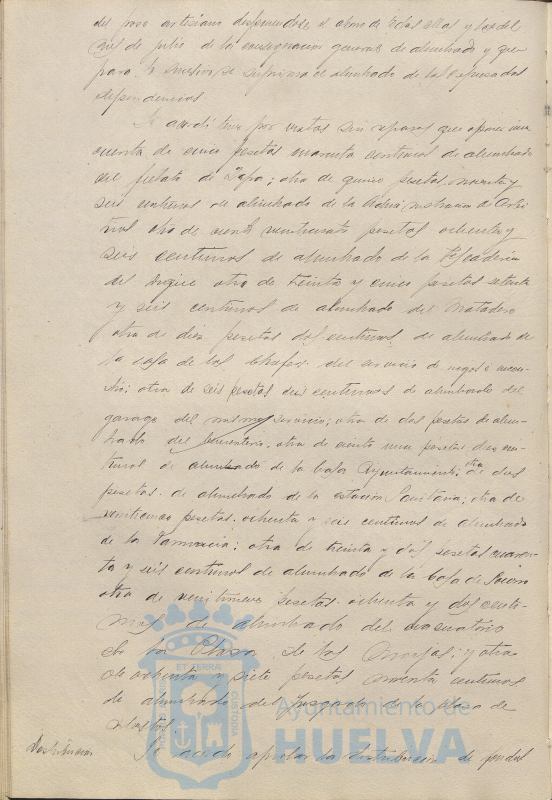 del pozo artesiano disponiendose el abono de todas ellas y las del
mil de julio de la consignacion general de alumbrado y que
para lo sucesivo se suprima el alumbrado de las expresadas
dependencias
Se acordó tener por vistas sin reparos que aparece una
cuenta de cinco pesetas cuarenta centimos de alumbrado
del fielato de ; otra de quince pesetas noventa y
seis centimos de alumbrado de la Administracion de Arbi
trios otra de ciento veinticuatro pesetas ochenta y
seis centimos de alumbrado de la Pescaderia
del otra de treinta y cinco pesetas setenta
y seis centimos de alumbrado del Matadero
otra de diez pesetas dos centimos de alumbrado de
la casa de los Chofer del servicio de riegos e incen
dio; otra de seis pesetas seis centimos de alumbrado del
garage del mismo servicio; otra de dos pesetas de alum
brado del Cementerio. otra de ciento una pesetas dos cen
timos de alumbrado de la Casa Ayuntamiento; otra de dos
pesetas de alumbrado de la estacion Sanitaria; otra de
veinticinco pesetas ochenta y seis centimos de alumbrado
de la Farmacia; otra de treinta y dos pesetas cuaren
ta y seis centimos de alumbrado de la Casa de Socorro
otra de veintinueve pesetas ochenta y dos centi
mos de alumbrado del evacuatorio
de la Plaza de las Monjas; y otra
de ochenta y siete pesetas noventa centimos
de alumbrado del Juzgado de la clase de
ET TERRÆ
CUSTODIA
Ayuntamiento de
HUELVA
Distribucion
Se acordó aprobar la distribucion de fondos